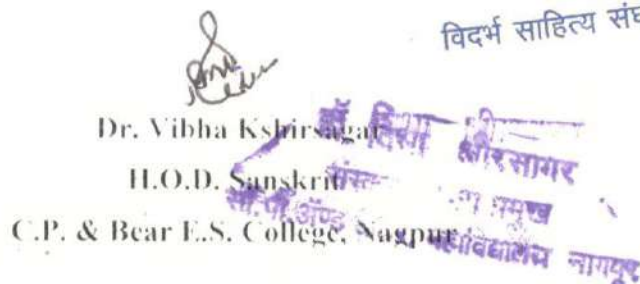 विदर्भ साहित्य संघ
Dr. Vibha Kshirsagar
H.O.D. Sanskrit
C.P. & Bear E.S. College, Nagpur
क्षीरसागर
प्रमुख
सी.पी.अँण्ड महाविद्यालय नागपूर